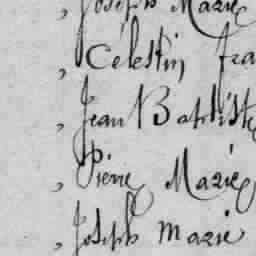 , Joseph Marie
, Célestin Fra
, Jean Baptiste
, Pierre Marie
, Joseph Marie